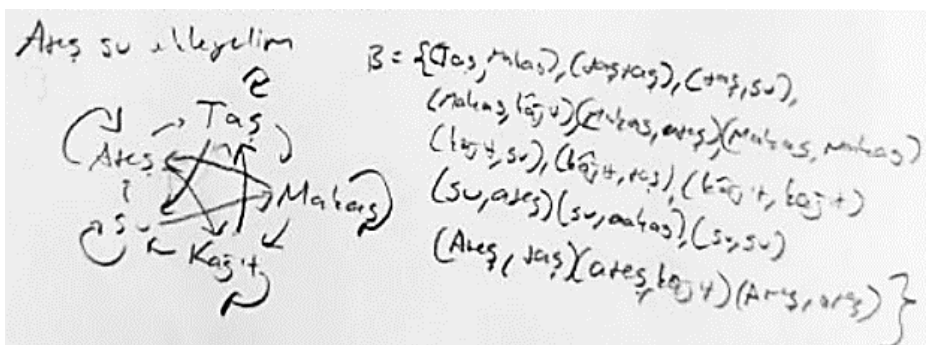 Ateş su ekleyelim
Taş
Ateş
Makas
Su
Kağıt
B = {(Taş, Makas), (taş, taş), (taş, su),
(Makas, kâğıt)(Makas, ateş)(Makas, makas)
(kağıt, su), (kâğıt, taş), (kâğıt, kağıt)
(su, ateş)(su, makas), (su, su)
(Ateş, taş)(ateş, kağıt)(Ateş, ateş)}